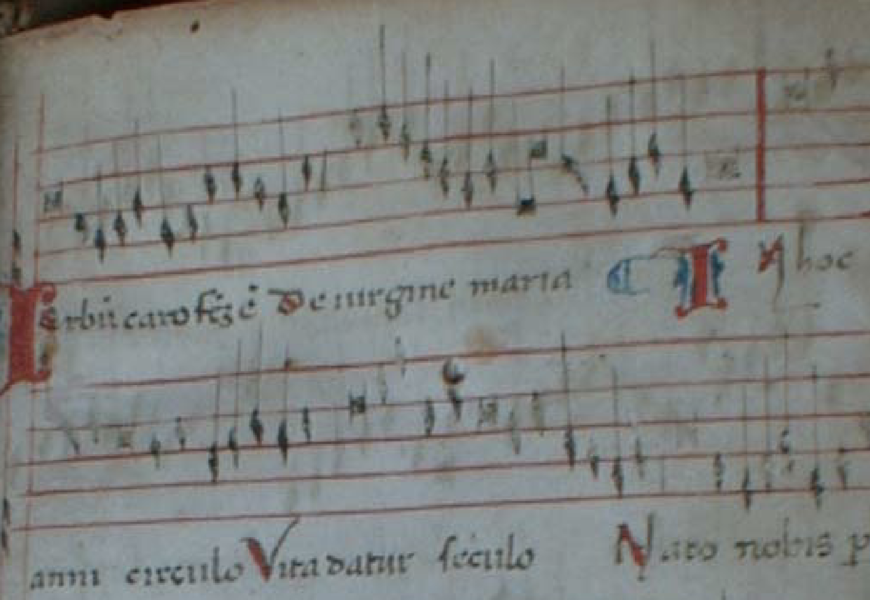 Verbū caro fc̄z ē De uirgine maria In hoc
anni circulo Vita datur seculo Nato nobis p